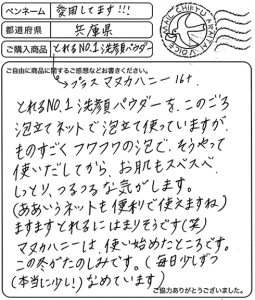 ペンネーム 愛用してます!!!
都道府県 兵庫県
ご購入商品 とれるNO.1洗顔パウダー
ご自由に商品に関するご感想などお書きください。
プラス マヌカハニー16+
とれるNO.1洗顔パウダーを、このごろ
泡立てネットで泡立て使っていますが、
ものすごくフワフワの泡で、そうやって
使いだしてから、お肌もスベスベ、
しっとり、つるつるな気がします。
(ああいうネットも便利で使えますね)
ますますとれるにはまりそうです(笑)
マヌカハニーは、使い始めたところです。
この冬がたのしみです。(毎日少しずつ
(本当に少し!)なめています)
ご協力ありがとうございました。